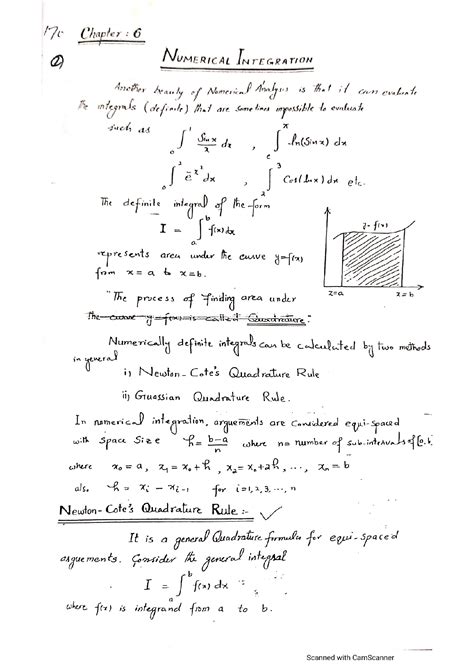 Chapter : 6
NUMERICAL INTEGRATION
Another beauty of Numerical Analysis is that it can evaluate
the integrals (definite) that are sometimes impossible to evaluate
such as
∫₀¹ Sinx/x dx , ∫ₑ^π ln(Sinx) dx
∫₀² e^-x² dx , ∫₂³ Cos(lnx) dx etc.
The definite integral of the form
I = ∫ₐᵇ f(x) dx
represents area under the curve y=f(x)
from x=a to x=b.
y=f(x)
x=a x=b
"The process of finding area under
the curve y=f(x) is called Quadrature."
Numerically definite integrals can be calculated by two methods
in general
i) Newton-Cote's Quadrature Rule
ii) Guassian Quadrature Rule.
In numerical integration, arguements are considered equi-spaced
with Space Size h = b-a/n where n= number of sub.intervals of [a.b.
where x₀ = a, x₁ = x₀+h, x₂ = x₀+2h, ..., xₙ = b
also h = xᵢ - xᵢ₋₁ for i=1,2,3, ..., n
Newton-Cote's Quadrature Rule :-
It is a general Quadrature formula for equi-spaced
arguements. Consider the general integral
I = ∫ₐᵇ f(x) dx
where f(x) is integrand from a to b.
Scanned with CamScanner